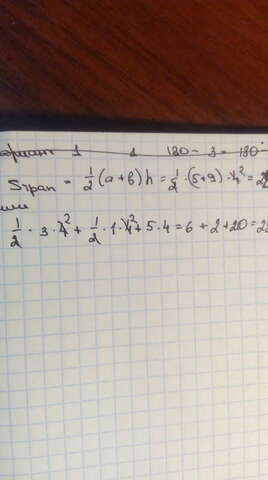 1 1 180 - 3 = 180°
Sтрап = 1/2 (a + b) h = 1/2 · (5 + 9) · 4² = 2
или
1/2 · 3 · 4² + 1/2 · 1 · 4² + 5 · 4 = 6 + 2 + 20 = 2